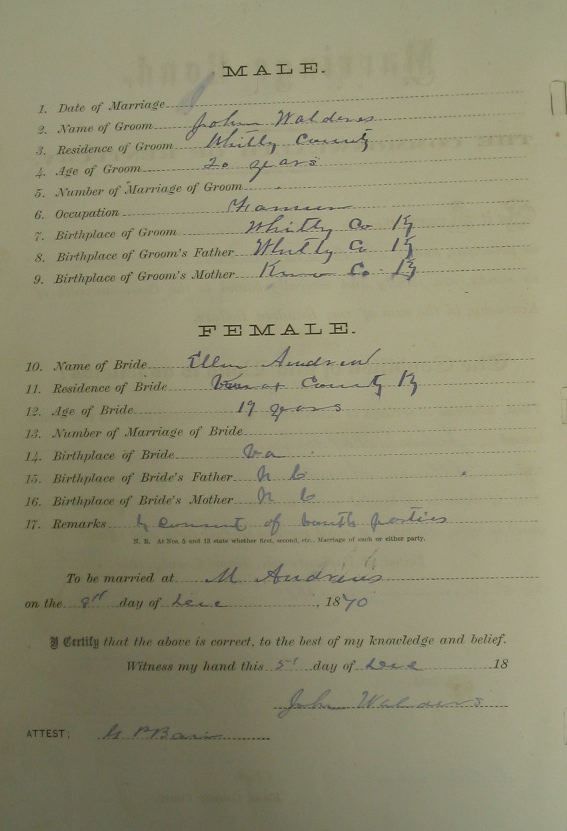 MALE.
1. Date of Marriage
2. Name of Groom John Walders
3. Residence of Groom Whitly County
4. Age of Groom 20 years
5. Number of Marriage of Groom
6. Occupation Farmer
7. Birthplace of Groom Whitly Co Ky
8. Birthplace of Groom's Father Whitly Co Ky
9. Birthplace of Groom's Mother Knox Co. Ky
FEMALE.
10. Name of Bride Ellen Andrew
11. Residence of Bride County Ky
12. Age of Bride 19 years
13. Number of Marriage of Bride
14. Birthplace of Bride Va
15. Birthplace of Bride's Father N C
16. Birthplace of Bride's Mother N C
17. Remarks by consent of parties
N. B. At Nos. 5 and 13 state whether first, second, etc., Marriage of each or either party.
To be married at M Andrews
on the 8th day of Dece, 1870
I Certify that the above is correct, to the best of my knowledge and belief.
Witness my hand this 5th day of Dece 18
John Walders
ATTEST;